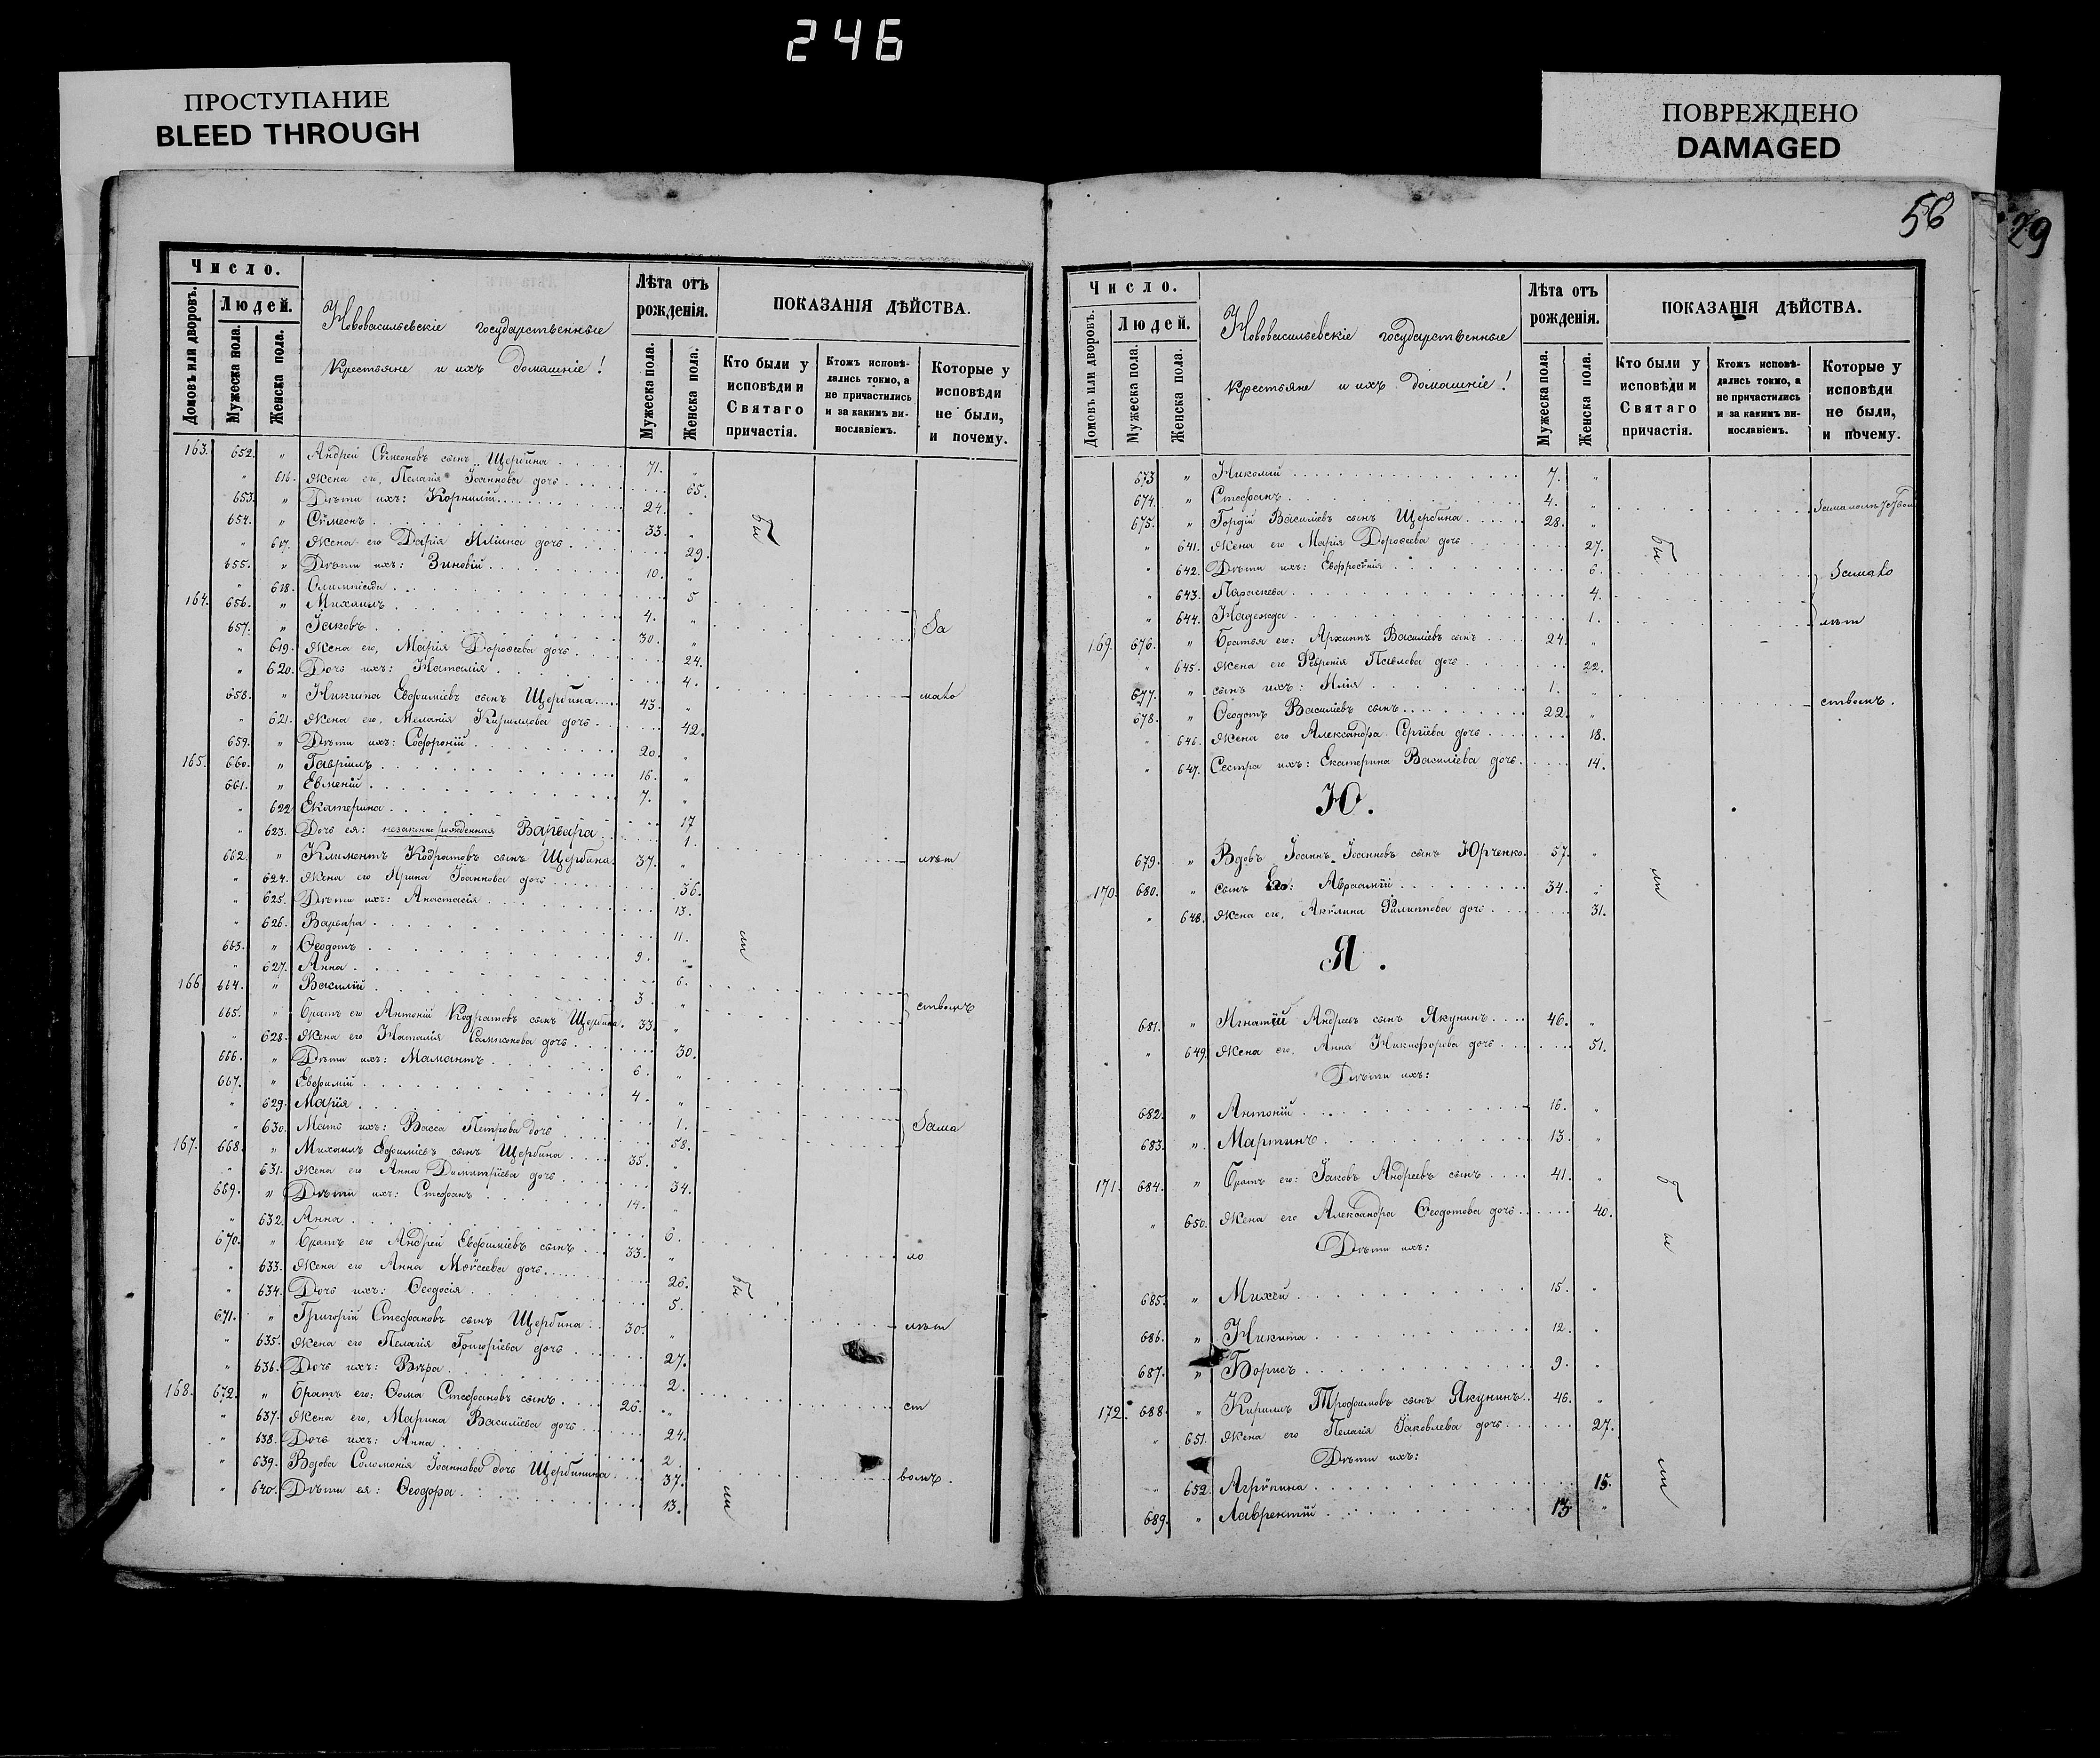 246
ПРОСТУПАНИЕ
BLEED THROUGH
ПОВРЕЖДЕНО
DAMAGED
56
29
Число.
Людей.
Домовъ или дворовъ.
Мужеска пола.
Женска пола.
Нововасильевскіе государственные
крестьяне и ихъ домашніе!
Лѣта отъ
рожденія.
Мужеска пола.
Женска пола.
ПОКАЗАНІЯ ДѢЙСТВА.
Кто были у
исповѣди и
Святаго
причастія.
Ктожъ исповѣ-
дались токмо, а
не причастились
и за какимъ ви-
нословіемъ.
Которые у
исповѣди
не были,
и почему.
163. 652. „ Андрей Сѵмеоновъ сынъ Щербина 71. „
„ 616. Жена его, Пелагія Іоаннова дочь 65.
653. „ Дѣти ихъ: Корнилій 24. „
654. „ Сѵмеонъ 33. „
„ 617. Жена его Дарія Иліина дочь 29.
655. „ Дѣти ихъ: Зиновій 10. „
„ 618. Олимпіада 5
164. 656. „ Михаилъ 4. „ За
657. „ Іаковъ 30. „
„ 619. Жена его, Марія Дороѳеева дочь 24.
„ 620. Дочь ихъ: Наталія 4. мало
658. „ Никита Евфиміевъ сынъ Щербина 43. „
„ 621. Жена его, Меланія Кириллова дочь 42.
659. „ Дѣти ихъ: Софроній 20. „
165. 660. „ Гавріилъ 16. „
661. „ Евменій 7. „
„ 622 Екатерина 17
„ 623. Дочь ея: незаконнорожденная Варвара 1. лѣт
662. „ Климентъ Кодратовъ сынъ Щербина 37. „
„ 624. Жена его Ирина Іоаннова дочь 36.
„ 625. Дѣти ихъ: Анастасія 13.
„ 626. Варвара 11.
663. „ Ѳеодотъ 9. „
„ 627. Анна 6.
166 664. „ Василій 3. „ ствомъ
665. „ Братъ его Антоній Кодратовъ сынъ Щербина 33. „
„ 628. Жена его Наталія Сампсонова дочь 30.
666. „ Дѣти ихъ: Мамантъ 6. „
667. „ Евфимій 4. „
„ 629. Марія 1. Зама
„ 630. Мать ихъ: Васса Петрова дочь 58.
167. 668. „ Михаилъ Евфиміевъ сынъ Щербина 35. „
„ 631. Жена его Анна Димитріева дочь 34.
669. „ Дѣти ихъ: Стефанъ 14. „
„ 632. Анна 6. ло
670. „ Братъ его Андрей Евфиміевъ сынъ 33. „
„ 633. Жена его Анна Моѵсеева дочь 26.
„ 634. Дочь ихъ: Ѳеодосія 5. лѣт
671. „ Григорій Стефановъ сынъ Щербина 30. „
„ 635. Жена его Пелагія Григоріева дочь 27.
„ 636. Дочь ихъ: Вѣра 2. ст
168. 672. „ Братъ его: Ѳома Стефановъ сынъ 26. „
„ 637. Жена его, Марина Василіева дочь 24.
„ 638. Дочь ихъ: Анна 2. вомъ.
„ 639. Вдова Соломонія Іоаннова дочь Щербинина 37.
„ 640. Дѣти ея: Ѳеодора 13.
бы
ли
бы
ли
Число.
Людей.
Домовъ или дворовъ.
Мужеска пола.
Женска пола.
Нововасильевскіе государственные
крестьяне и ихъ домашніе!
Лѣта отъ
рожденія.
Мужеска пола.
Женска пола.
ПОКАЗАНІЯ ДѢЙСТВА.
Кто были у
исповѣди и
Святаго
причастія.
Ктожъ исповѣ-
дались токмо, а
не причастились
и за какимъ ви-
нославіемъ.
Которые у
исповѣди
не были,
и почему.
673 „ Николай 7. „
674. „ Стефанъ 4. „
675. „ Гордій Василіевъ сынъ Щербина 28. „
„ 641. Жена его Марія Дороѳеева дочь 27.
„ 642. Дѣти ихъ: Евфросѵнія 6. Замало
„ 643. Параскева 4.
„ 644. Надежда 1. лѣт
169. 676. „ Братья его: Архиппъ Василіевъ сынъ 24. „
„ 645. Жена его Февронія Павлова дочь 22.
677. „ сынъ ихъ: Илія 1. „ ствомъ.
678. „ Ѳеодотъ Василіевъ сынъ 22. „
„ 646. Жена его Александра Сергіева дочь 18.
„ 647. Сестра ихъ: Екатерина Василіева дочь 14.
Ю.
679. „ Вдовъ Іоаннъ Іоанновъ сынъ Юрченко. 57. „
170. 680. „ сынъ Его: Авраамій 34. „
„ 648. Жена его, Акѵлина Филиппова дочь 31.
Я.
681. „ Игнатій Андреевъ сынъ Якунинъ 46. „
„ 649. Жена его, Анна Никифорова дочь 51.
Дѣти ихъ:
682. „ Антоній 16. „
683. „ Мартинъ 13. „
171. 684. „ Братъ его: Іаковъ Андреевъ сынъ 41. „
„ 650. Жена его Александра Ѳеодотова дочь 40.
Дѣти ихъ:
685. „ Михей 15. „
686. „ Никита 12. „
687. „ Борисъ 9. „
172. 688. „ Кириллъ Трофимовъ сынъ Якунинъ 46. „
„ 651. Жена его Пелагія Іаковлева дочь 27.
Дѣти ихъ:
„ 652. Агрѵпина 15.
689. „ Лаврентій 13 „
бы
ли
б
ы
ли